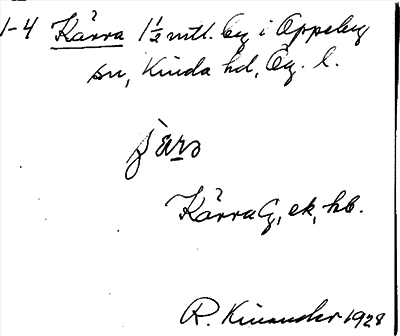 1-4 Kärra 1½ mtl. by i Oppeby
sn, Kinda hd, Ög. l.
Kärra G, ek, hb.
R. Kinander 1928